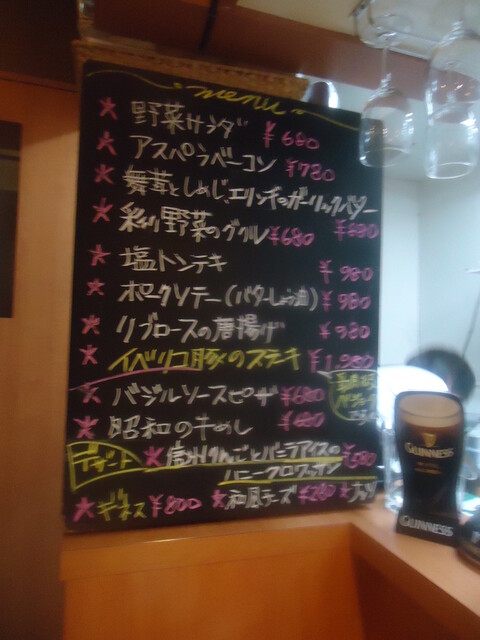 menu
★ 野菜サラダ ¥680
★ アスペラベーコン ¥780
★ 舞茸としめじ、エリンギのガーリックバター ¥680
★ 彩り野菜のグリル ¥680
★ 塩トンテキ ¥980
★ ポークソテー(バターしょう油) ¥980
★ リブロースの唐揚げ ¥980
★ イベリコ豚のステキ ¥1,980
★ バジルソースピザ ¥680
★ 昭和の牛めし ¥680
デザート ★ 信州りんごとバニラアイスの
ハニークロワッサン
★ ギネス ¥800 ★ 和風チーズ ¥280 ★
GUINNESS
GUINNESS